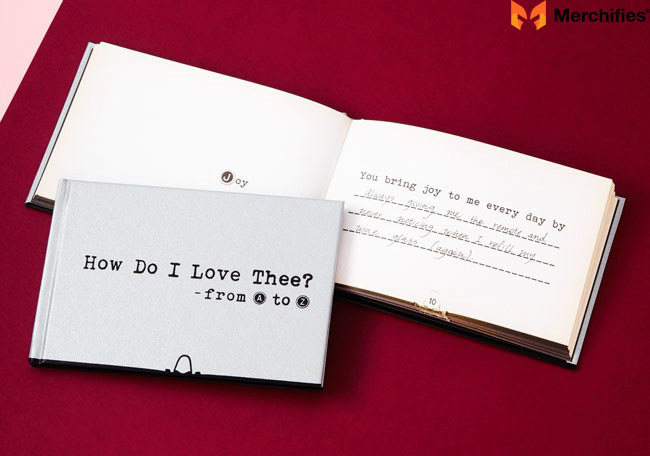 Merchifies
Joy
You bring joy to me every day by
Always giving me the remote and
never noticing when I refill my
wine glass (again)
10
How Do I Love Thee?
-from A to Z